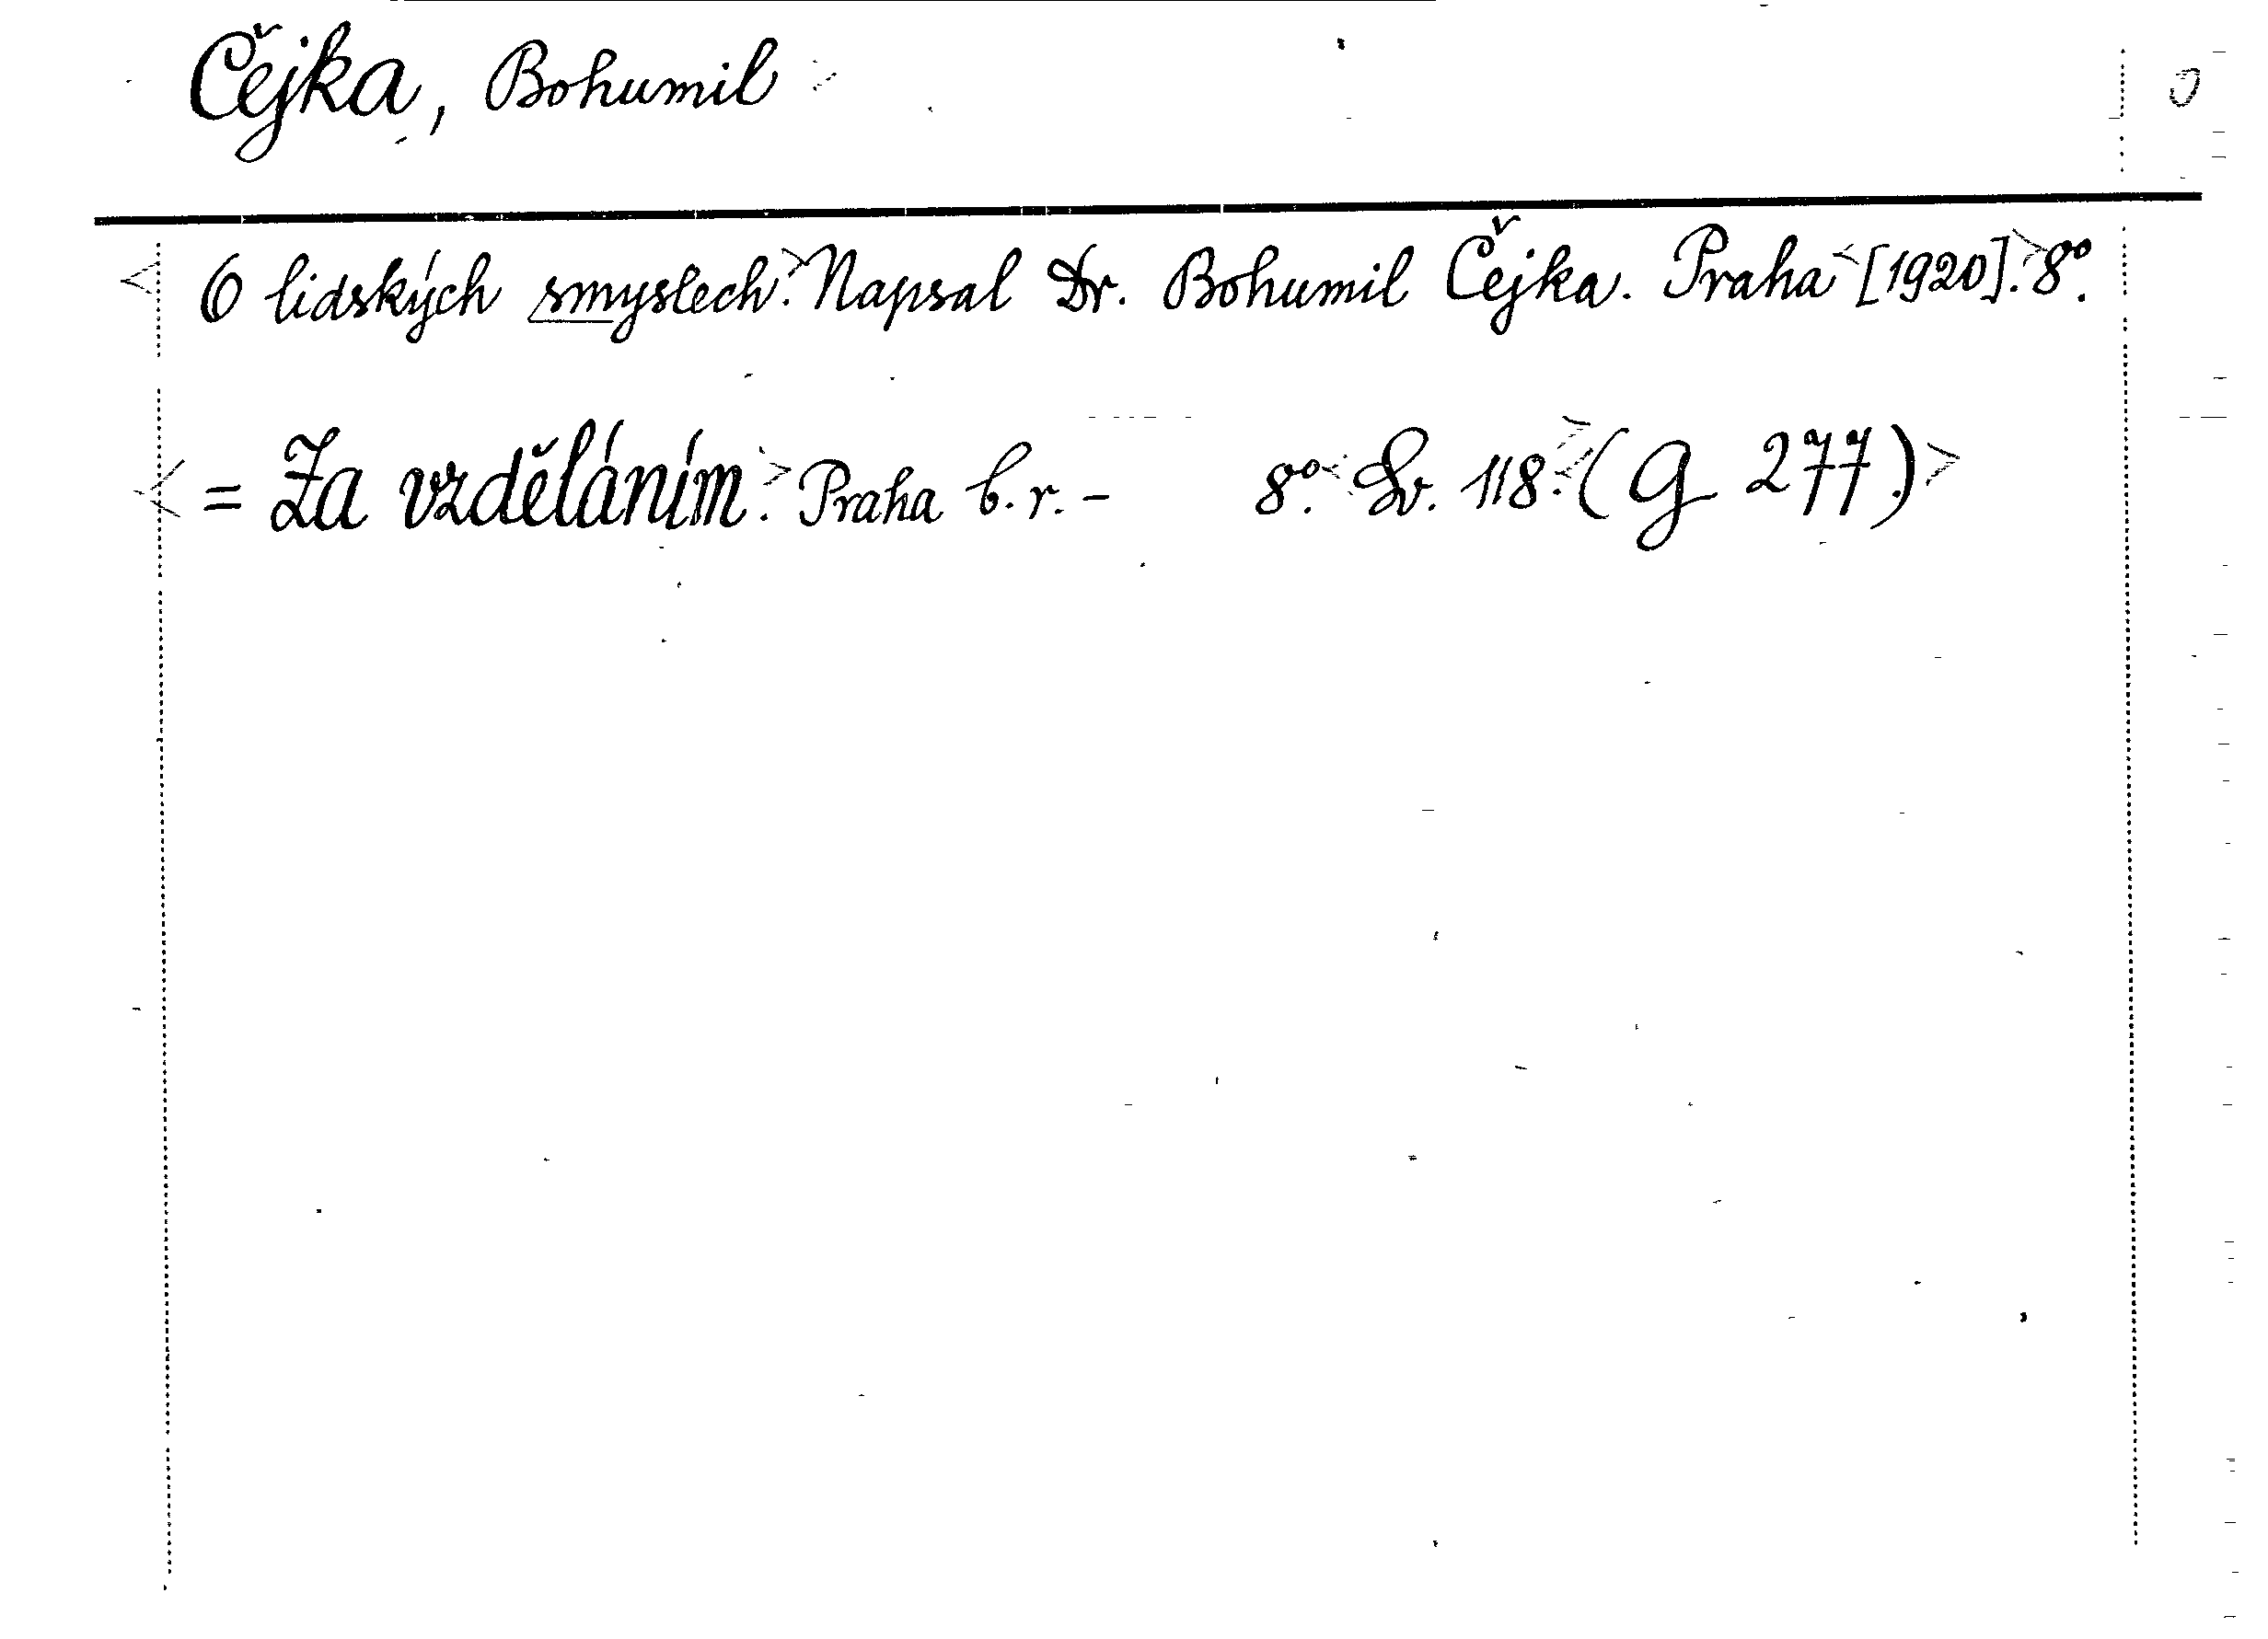 Čejka, Bohumil
O lidských smyslech. Napsal Dr. Bohumil Čejka. Praha [1920]. 8°.
= Za vzděláním. Praha b. r. – 8°. Sv. 118. (G 277.)